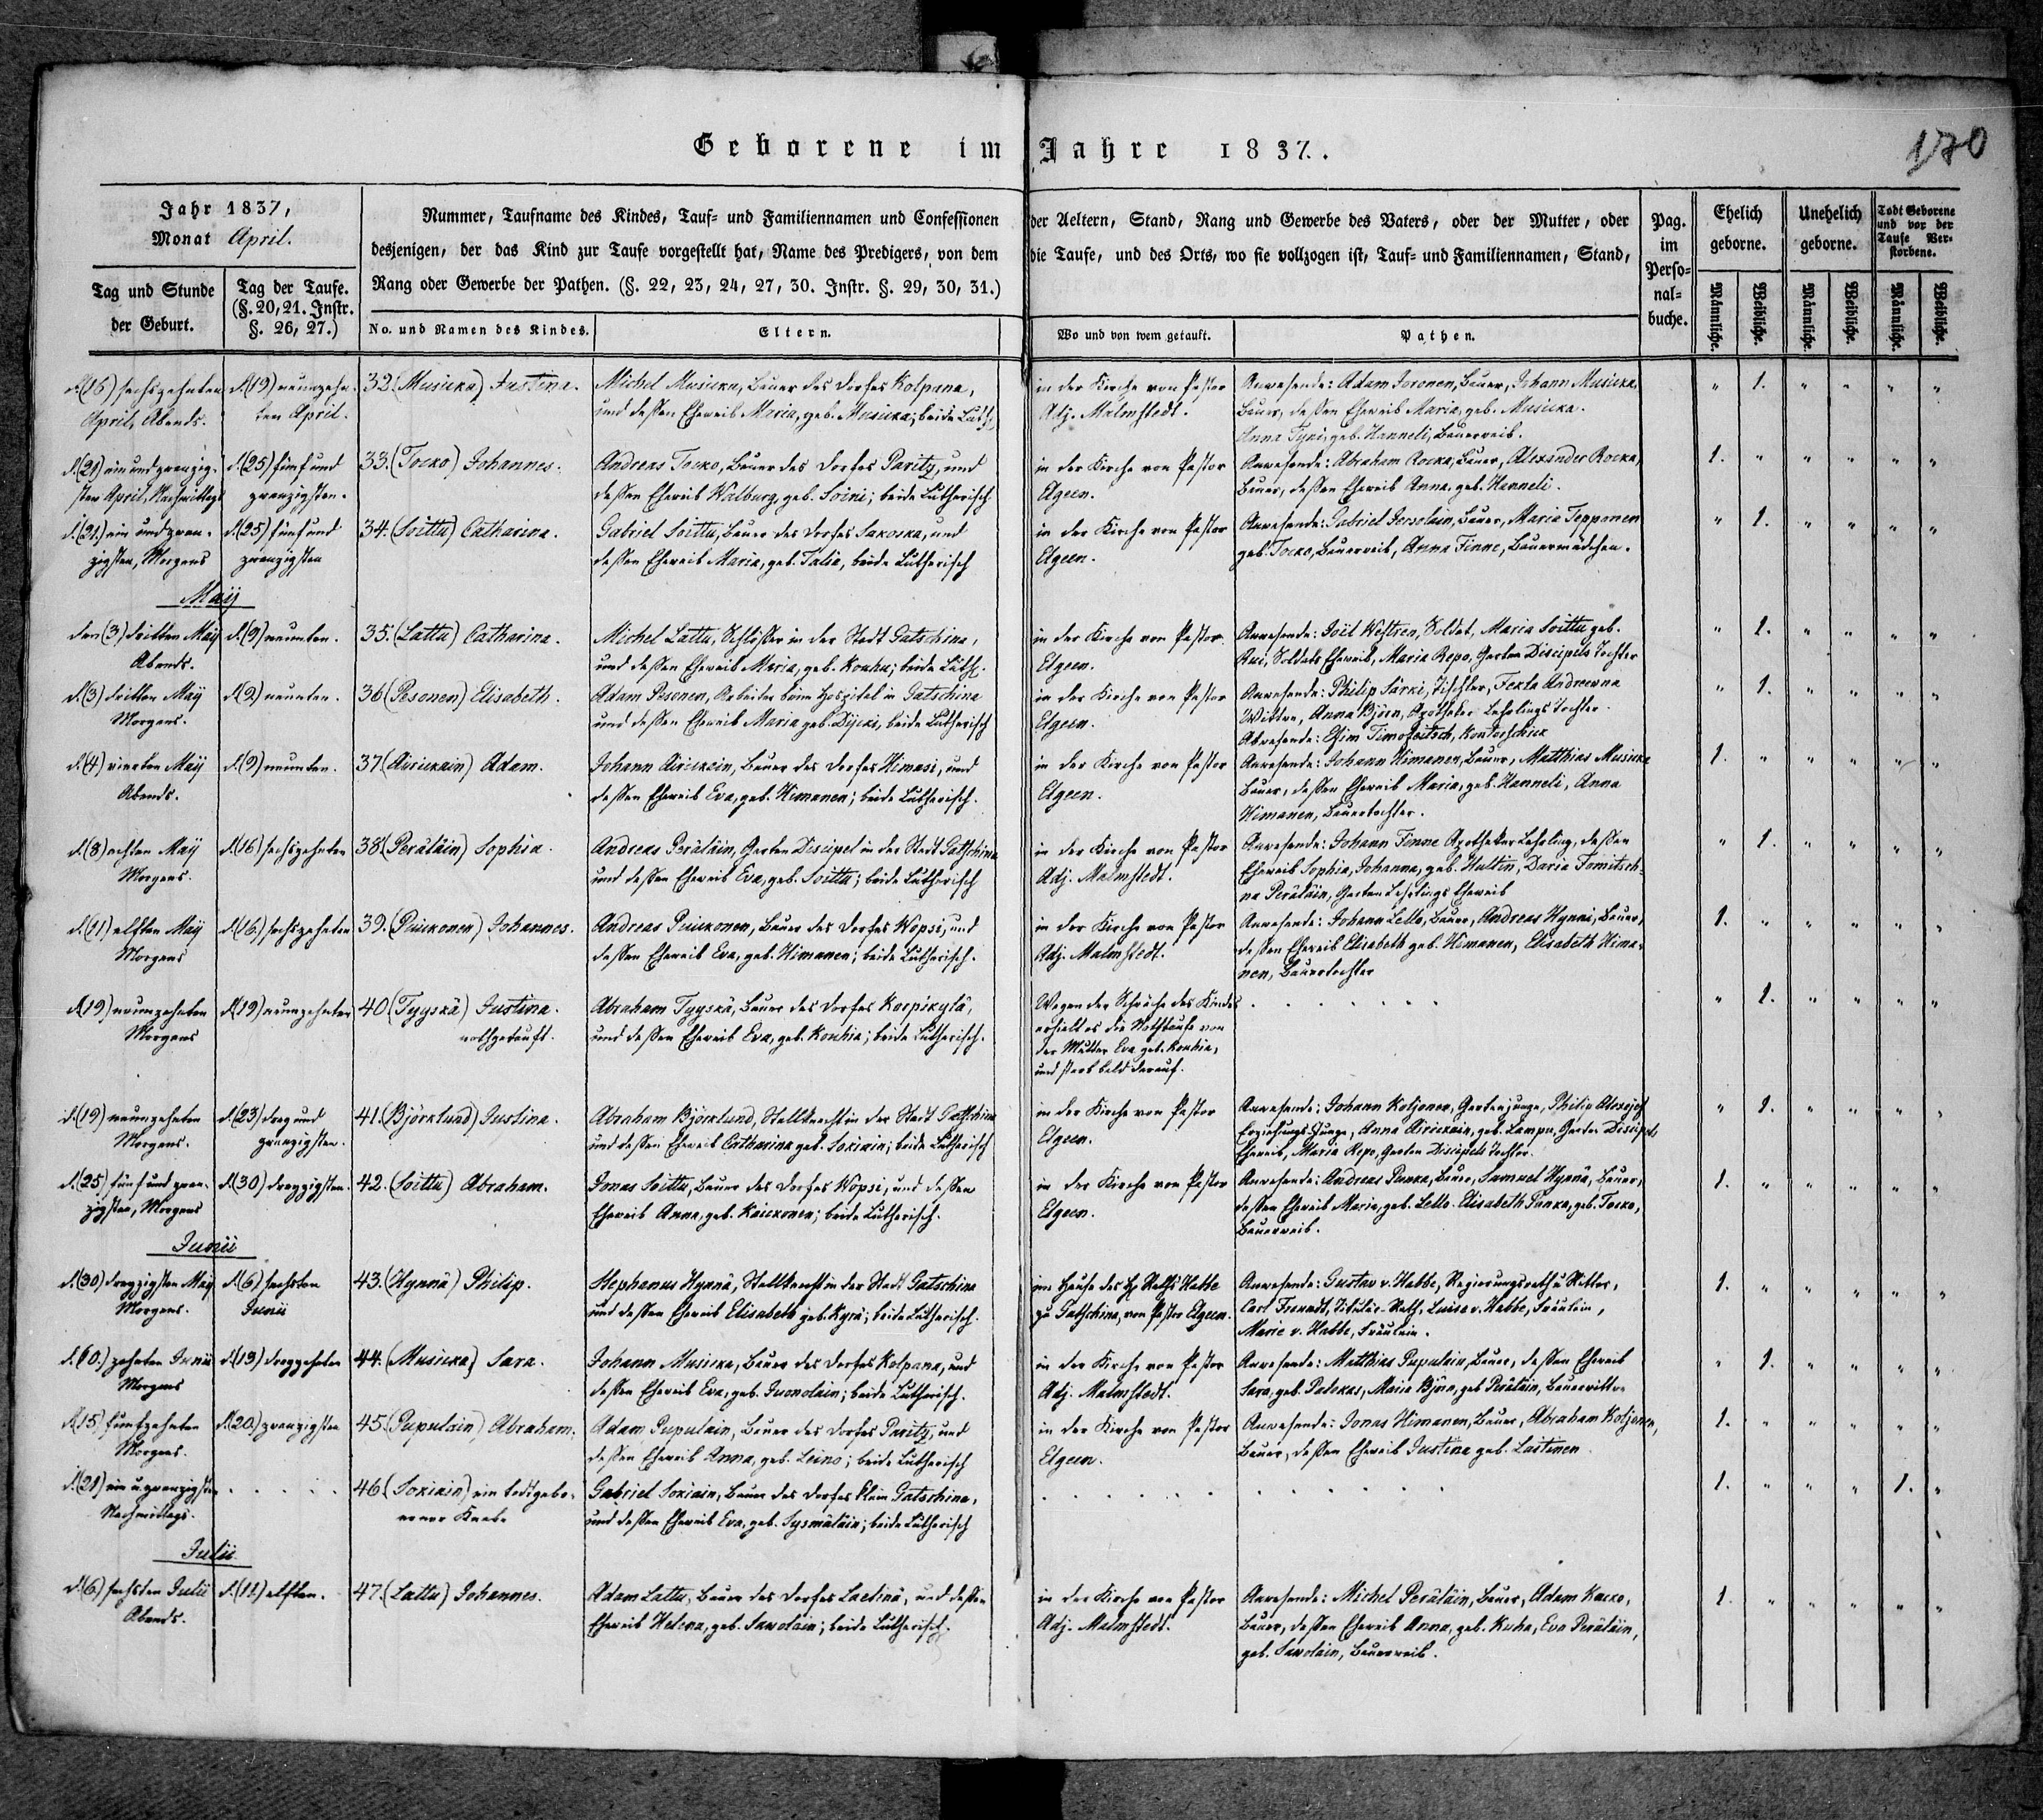 170
Geborene im Jahre 1837.
Jahr 1837,
Monat April.
Nummer, Taufname des Kindes, Tauf- und Familiennamen und Confessionen der Aeltern, Stand, Rang und Gewerbe des Vaters, oder der Mutter, oder
desjenigen, der das Kind zur Taufe vorgestellt hat, Name des Predigers, von dem die Taufe, und des Orts, wo sie vollzogen ist, Tauf- und Familiennamen, Stand,
Rang oder Gewerbe der Pathen. (§. 22, 23, 24, 27, 30. Instr. §. 29, 30, 31.)
Pag.
im
Perso-
nal-
buche.
Ehelich
geborne.
Unehelich
geborne.
Todt Geborene
und vor der
Taufe Ver-
storbene.
Tag und Stunde
der Geburt.
Tag der Taufe.
(§. 20, 21. Instr.
§. 26, 27.)
No. und Namen des Kindes.
Eltern.
Wo und von wem getauft.
Pathen.
Männliche.
Weibliche.
Männliche.
Weibliche.
Männliche.
Weibliche.
d. (16) sechszehnten
April, Abends.
d. (19) neunzehn-
ten April.
32. (Musikka) Justina.
Michel Musikka, Bauer des Dorfes Kolpana,
und deßen Eheweib Maria, geb. Musikka; beide Luth.
in der Kirche von Pastor
Adj. Malmstedt.
Anwesende: Adam Joronen, Bauer, Johann Musikka,
Bauer, deßen Eheweib Maria, geb. Musikka.
Anna Tyni, geb. Hanneli, Bauerweib.
" 1. " " " "
d. (21) ein und zwanzig-
sten April, Nachmittags
d. (25) fünf und
zwanzigsten.
33. (Tocko) Johannes.
Andreas Tocko, Bauer des Dorfes Paritz, und
deßen Eheweib Walburg, geb. Soini; beide Lutherisch
in der Kirche von Pastor
Elgeen.
Anwesende: Abraham Rocka, Bauer, Alexander Rocka,
Bauer, deßen Eheweib Anna, geb. Hanneli.
1. " " " " "
d. (21.) ein und zwan-
zigsten, Morgens
d. (25) fünf und
zwanzigsten
34. (Soittu) Catharina.
Gabriel Soittu, Bauer des Dorfes Sakoska, und
deßen Eheweib Maria, geb. Talia, beide Lutherisch
in der Kirche von Pastor
Elgeen.
Anwesende: Gabriel Jorsolain, Bauer, Maria Tepponen
geb. Tocko, Bauerweib, Anna Finne, Bauermädchen.
" 1. " " " "
Maÿ
den (3) dritten Maÿ
Abends.
d. (9) neunten.
35. (Lattu) Catharina.
Michel Lattu, Schloßer in der Stadt Gatschina,
und deßen Eheweib Maria, geb. Kouhu; beide Luth.
in der Kirche von Pastor
Elgeen.
Anwesende: Joël Westren, Soldat, Maria Soittu geb.
Rui, Soldats Eheweib, Maria Repo, Garten Discipels Tochter
" 1. " " " "
d. (3) dritten Maÿ
Morgens.
d. (9) neunten.
36. (Pesonen) Elisabeth.
Adam Pesonen, Arbeiter beim Hospital in Gatschina
und deßen Eheweib Maria geb. , beide Lutherisch
in der Kirche von Pastor
Elgeen.
Anwesende: Philip Särki, Tischler, Tekla Andreewna
Wittwe, Anna Björn, Apotheker Lehrlings Tochter.
Abwesende: Efim Timofeitsch, Kontorschick
" 1. " " " "
d. (4) vierten Maÿ
Abends.
d. (9) neunten.
37. (Airikain) Adam.
Johann Airikain, Bauer des Dorfes Himasi, und
deßen Eheweib Eva, geb. Himanen; beide Lutherisch.
in der Kirche von Pastor
Elgeen.
Anwesende: Johann Himanen, Bauer, Matthias Musikka
Bauer, deßen Eheweib Maria, geb. Hanneli, Anna
Himanen, Bauertochter.
1. " " " " "
d. (8) achten Maÿ
Morgens.
d. (16) sechszehnten
38. (Peräläin) Sophia.
Andreas Peräläin, Garten Discipel in der Stadt Gatschina
und deßen Eheweib Eva, geb. Soittu; beide Lutherisch
in der Kirche von Pastor
Adj. Malmstedt.
Anwesende: Johann Finne Apotheker Lehrling, deßen
Eheweib Sophia, Johanna, geb. Hultin, Daria Fomitsch-
na Peräläin, Garten Lehrlings Eheweib
" 1. " " " "
d. (11) elften Maÿ
Morgens
d. (16.) sechszehnten
39. (Puikkonen) Johannes.
Andreas Puikkonen, Bauer des Dorfes Wopsi, und
deßen Eheweib Eva, geb. Himanen; beide Lutherisch.
in der Kirche von Pastor
Adj. Malmstedt.
Anwesende: Johann Lello, Bauer, Andreas Hynni, Bauer,
deßen Eheweib Elisabeth geb. Himanen, Elisabeth Hima-
nen, Bauertochter
1. " " " " "
d. (19) neunzehnten
Morgens
d. (19) neunzehnten
40. (Tyyskä) Justina.
nothgetauft.
Abraham Tyyskä, Bauer des Dorfes Korpikylä,
und deßen Eheweib Eva, geb. Kouhia; beide Lutherisch.
Wegen der Schwäche des Kindes
erhielt es die Nothtaufe von
der Mutter Eva geb. Kouhia,
und starb bald darauf.
" 1. " " " "
d. (19) neunzehnten
Morgens.
d. (23) drey und
zwanzigsten.
41. (Björklund) Justina.
Abraham Björklund, Stallknecht in der Stadt Gatschina
und deßen Eheweib Catharina geb. Sokiain; beide Lutherisch
in der Kirche von Pastor
Elgeen.
Anwesende: Johann Koljonen, Gartenjunge, Philip Alexejef
Erziehungs-Junge, Anna Airikain, geb. Lampu, Garten Discipels
Eheweib, Maria Repo, Garten Discipels Tochter.
" 1. " " " "
d. (25) fünf und zwan-
zigsten, Morgens
d. (30) dreyzigsten.
42. (Soittu) Abraham.
Jonas Soittu, Bauer des Dorfes Wopsi, und deßen
Eheweib Anna, geb. Kaickonen; beide Lutherisch.
in der Kirche von Pastor
Elgeen.
Anwesende: Andreas Punka, Bauer, Samuel Hynnä, Bauer,
deßen Eheweib Maria, geb. Lello. Elisabeth Punka, geb. Tocko,
Bauerweib.
1. " " " " "
Junii
d. (30) dreyzigsten Maÿ
Morgens.
d. (6) sechsten
Junii
43. (Hynnä) Philip.
Stephanus Hynnä, Stallknecht in der Stadt Gatschina
und deßen Eheweib Elisabeth geb. Kyrä; beide Lutherisch.
im Hause des H. Raths Habbe
zu Gatschina, von Pastor Elgeen.
Anwesende: Gustav v. Habbe, Regierungsrath u Ritter,
Carl Freundt, Titulär-Rath, Luise v. Habbe, Fräulein,
Marie v. Habbe, Fräulein.
1. " " " " "
d. (10.) zehnten Junii
Morgens
d. (13) dreyzehnten
44. (Musikka) Sara.
Johann Musikka, Bauer des Dorfes Kolpana, und
deßen Eheweib Eva, geb. Juonolain; beide Lutherisch.
in der Kirche von Pastor
Adj. Malmstedt.
Anwesende: Matthias Pupulain, Bauer, deßen Eheweib
Sara, geb. Patakas, Maria Björn, geb Peräläin, Bauerwittwe
" 1. " " " "
d. (15) funfzehnten
Morgens.
d. (20.) zwanzigsten
45. (Pupulain) Abraham.
Adam Pupulain, Bauer des Dorfes Paritz, und
deßen Eheweib Anna, geb. Leino; beide Lutherisch
in der Kirche von Pastor
Elgeen.
Anwesende: Jonas Himanen, Bauer, Abraham Koljonen,
Bauer, deßen Eheweib Justina geb. Lastinen
1. " " " " "
d. (21) ein u. zwanzigsten
Nachmittags.
46. (Sokiain) ein todtgebo-
rener Knabe
Gabriel Sokiain, Bauer des Dorfes Klein Gatschina,
und deßen Eheweib Eva, geb. Sysmäläin; beide Lutherisch
1. " " " 1. "
Julii
d. (6) sechsten Julii
Abends.
d. (11) elften.
47. (Lattu) Johannes.
Adam Lattu, Bauer des Dorfes Laelinä, und deßen
Eheweib Helena, geb. Sawolain; beide Lutherisch.
in der Kirche von Pastor
Adj. Malmstedt.
Anwesende: Michel Peräläin, Bauer, Adam Kacko,
Bauer, deßen Eheweib Anna, geb. Kuha, Eva Peräläin,
geb. Sawolain, Bauerweib.
1. " " " " "